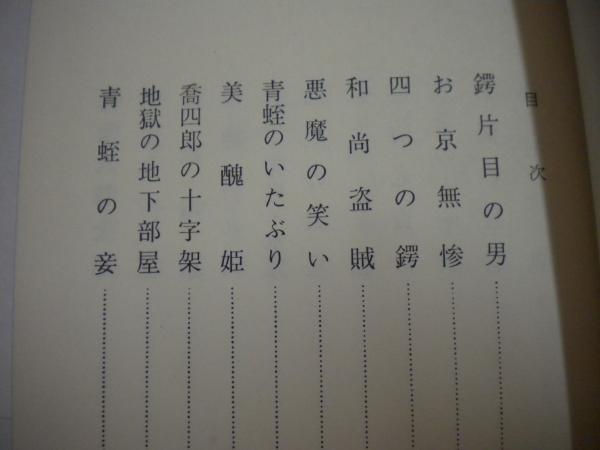 目次
鍔片目の男
お京無惨
四つの鍔
和尚盗賊
悪魔の笑い
青蛭のいたぶり
美醜姫
喬四郎の十字架
地獄の地下部屋
青蛭の妾